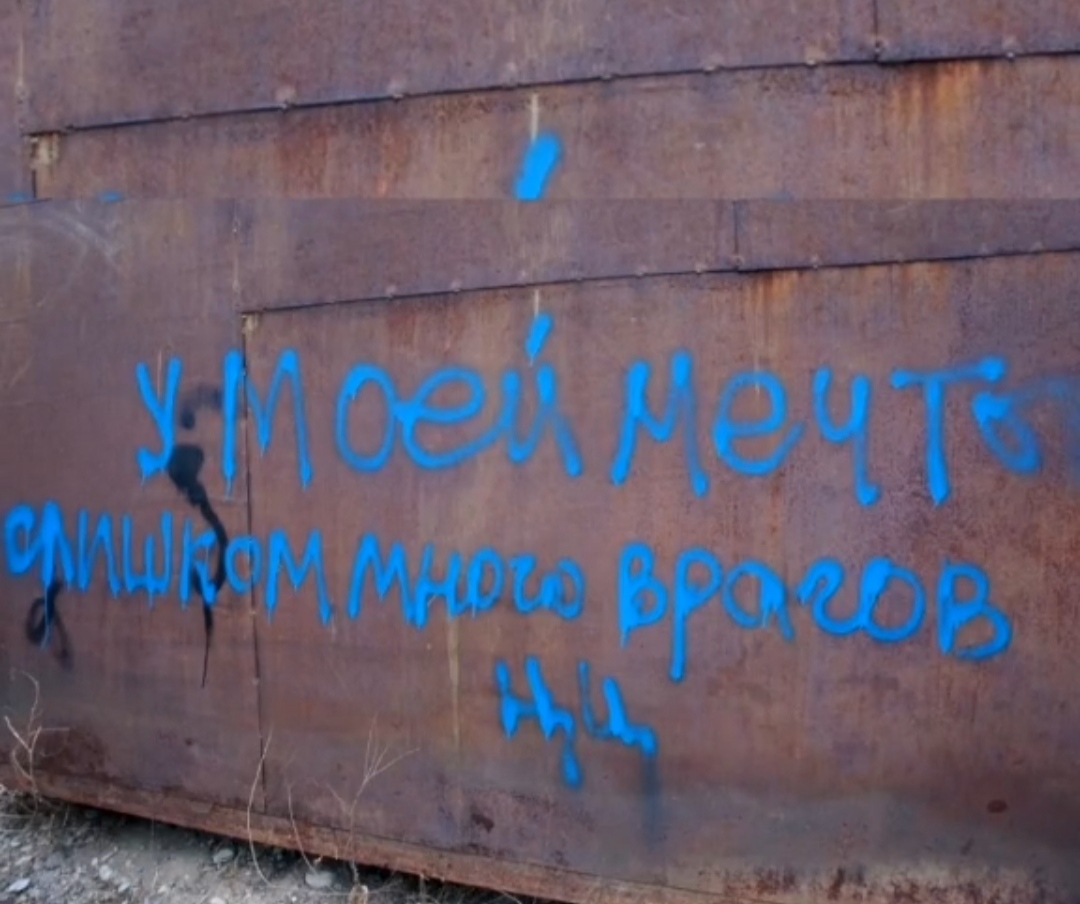 у моей мечты
слишком много врагов
ңц